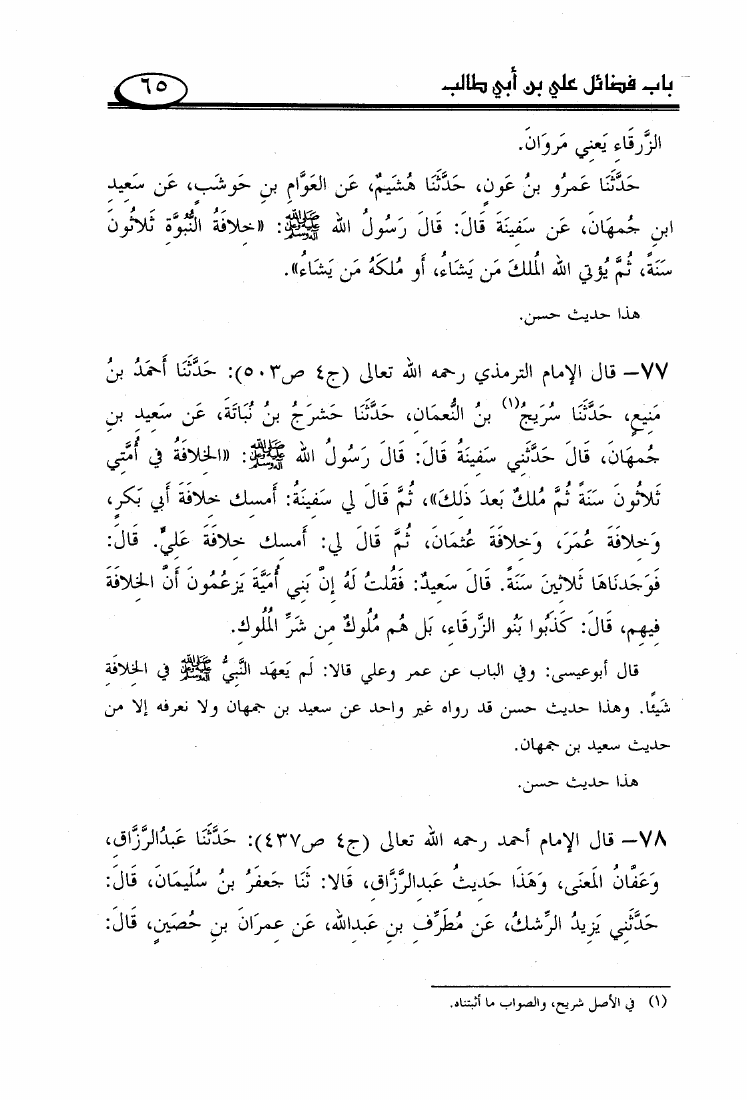 باب فضائل علي بن أبي طالب ٦٥
الزَّرقَاءِ يَعنِي مَروَانَ.
حَدَّثَنَا عَمرُو بنُ عَونٍ، حَدَّثَنَا هُشَيمٌ، عَن العَوَّامِ بنِ حَوشَبٍ، عَن سَعِيدِ
ابنِ جُمهَانَ، عَن سَفِينَةَ قَالَ: قَالَ رَسُولُ الله ﷺ: «خِلافَةُ النُّبُوَّةِ ثَلاثُونَ
سَنَةً، ثُمَّ يُؤتِي الله الُملكَ مَن يَشَاءُ، أَو مُلكَهُ مَن يَشَاءُ».
هذا حديث حسن.
٧٧- قال الإمام الترمذي رحمه الله تعالى (ج٤ ص٥٠٣): حَدَّثَنَا أَحمَدُ بنُ
مَنِيعٍ، حَدَّثَنَا سُرَيجُ(١) بنُ النُّعمَانِ، حَدَّثَنَا حَشرَجُ بنُ نُبَاتَةَ، عَن سَعِيدِ بنِ
جُمهَانَ، قَالَ حَدَّثَنِي سَفِينَةُ قَالَ: قَالَ رَسُولُ الله ﷺ: «الخِلافَةُ فِي أُمَّتِي
ثَلاثُونَ سَنَةً ثُمَّ مُلكٌ بَعدَ ذَلِكَ»، ثُمَّ قَالَ لِي سَفِينَةُ: أَمسِك خِلافَةَ أَبِي بَكرٍ،
وَخِلافَةَ عُمَرَ، وَخِلافَةَ عُثمَانَ، ثُمَّ قَالَ لِي: أَمسِك خِلافَةَ عَلِيٍّ. قَالَ:
فَوَجَدنَاهَا ثَلاثِينَ سَنَةً. قَالَ سَعِيدٌ: فَقُلتُ لَهُ إِنَّ بَنِي أُمَيَّةَ يَزعُمُونَ أَنَّ الخِلافَةَ
فِيهِم، قَالَ: كَذَبُوا بَنُو الزَّرقَاءِ، بَل هُم مُلُوكٌ مِن شَرِّ الُملُوكِ.
قال أبوعيسى: وفي الباب عن عمر وعلي قالا: لَم يَعهَد النَّبِيُّ ﷺ فِي الخِلافَةِ
شَيئًا. وهذا حديث حسن قد رواه غير واحد عن سعيد بن جمهان ولا نعرفه إلا من
حديث سعيد بن جمهان.
هذا حديث حسن.
٧٨- قال الإمام أحمد رحمه الله تعالى (ج٤ ص٤٣٧): حَدَّثَنَا عَبدُالرَّزَّاقِ،
وَعَفَّانُ الَمعنَى، وَهَذَا حَدِيثُ عَبدِالرَّزَّاقِ، قَالا: ثَنَا جَعفَرُ بنُ سُلَيمَانَ، قَالَ:
حَدَّثَنِي يَزِيدُ الرِّشكُ، عَن مُطَرِّفِ بنِ عَبدِالله، عَن عِمرَانَ بنِ حُصَينٍ، قَالَ:
(١) في الأصل شريح، والصواب ما أثبتناه.